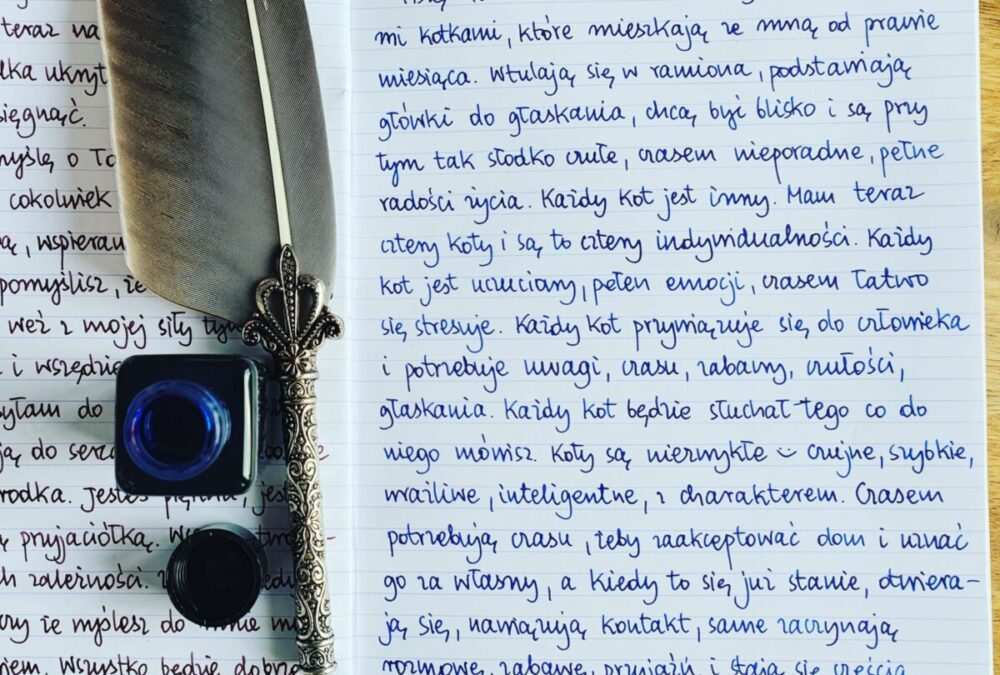 teraz na
ukryt
sięgnąć.
myślę o To
cokolwiek
ą, wspieran
pomyślisz, że
weź z mojej siły tym
i wszędzie
byłam do
ją do serca
środka. Jesteś piękna, jest
ą przyjaciółką.
ch zależności.
czy że myślesz do mnie
Wszystko będzie dobrze
mi kotkami, które mieszkają ze mną od prawie
miesiąca. Wtulają się w ramiona, podstawiają
główki do głaskania, chcą być blisko i są przy
tym tak słodko czułe, czasem nieporadne, pełne
radości życia. Każdy kot jest inny. Mam teraz
cztery koty i są to cztery indywidualności. Każdy
kot jest uczuciowy, pełen emocji, czasem łatwo
się stresuje. Każdy kot przywiązuje się do człowieka
i potrzebuje uwagi, czasu, zabawy, czułości,
głaskania. Każdy kot będzie słuchał tego co do
niego mówisz. Koty są niezwykłe czujne, szybkie,
wrażliwe, inteligentne, z charakterem. Czasem
potrzebują czasu, żeby zaakceptować dom i uznać
go za własny, a kiedy to się już stanie, otwiera-
ją się, nawiązują kontakt, same zaczynają
rozmowę, zabawę, przyjaźń i stają się częścią